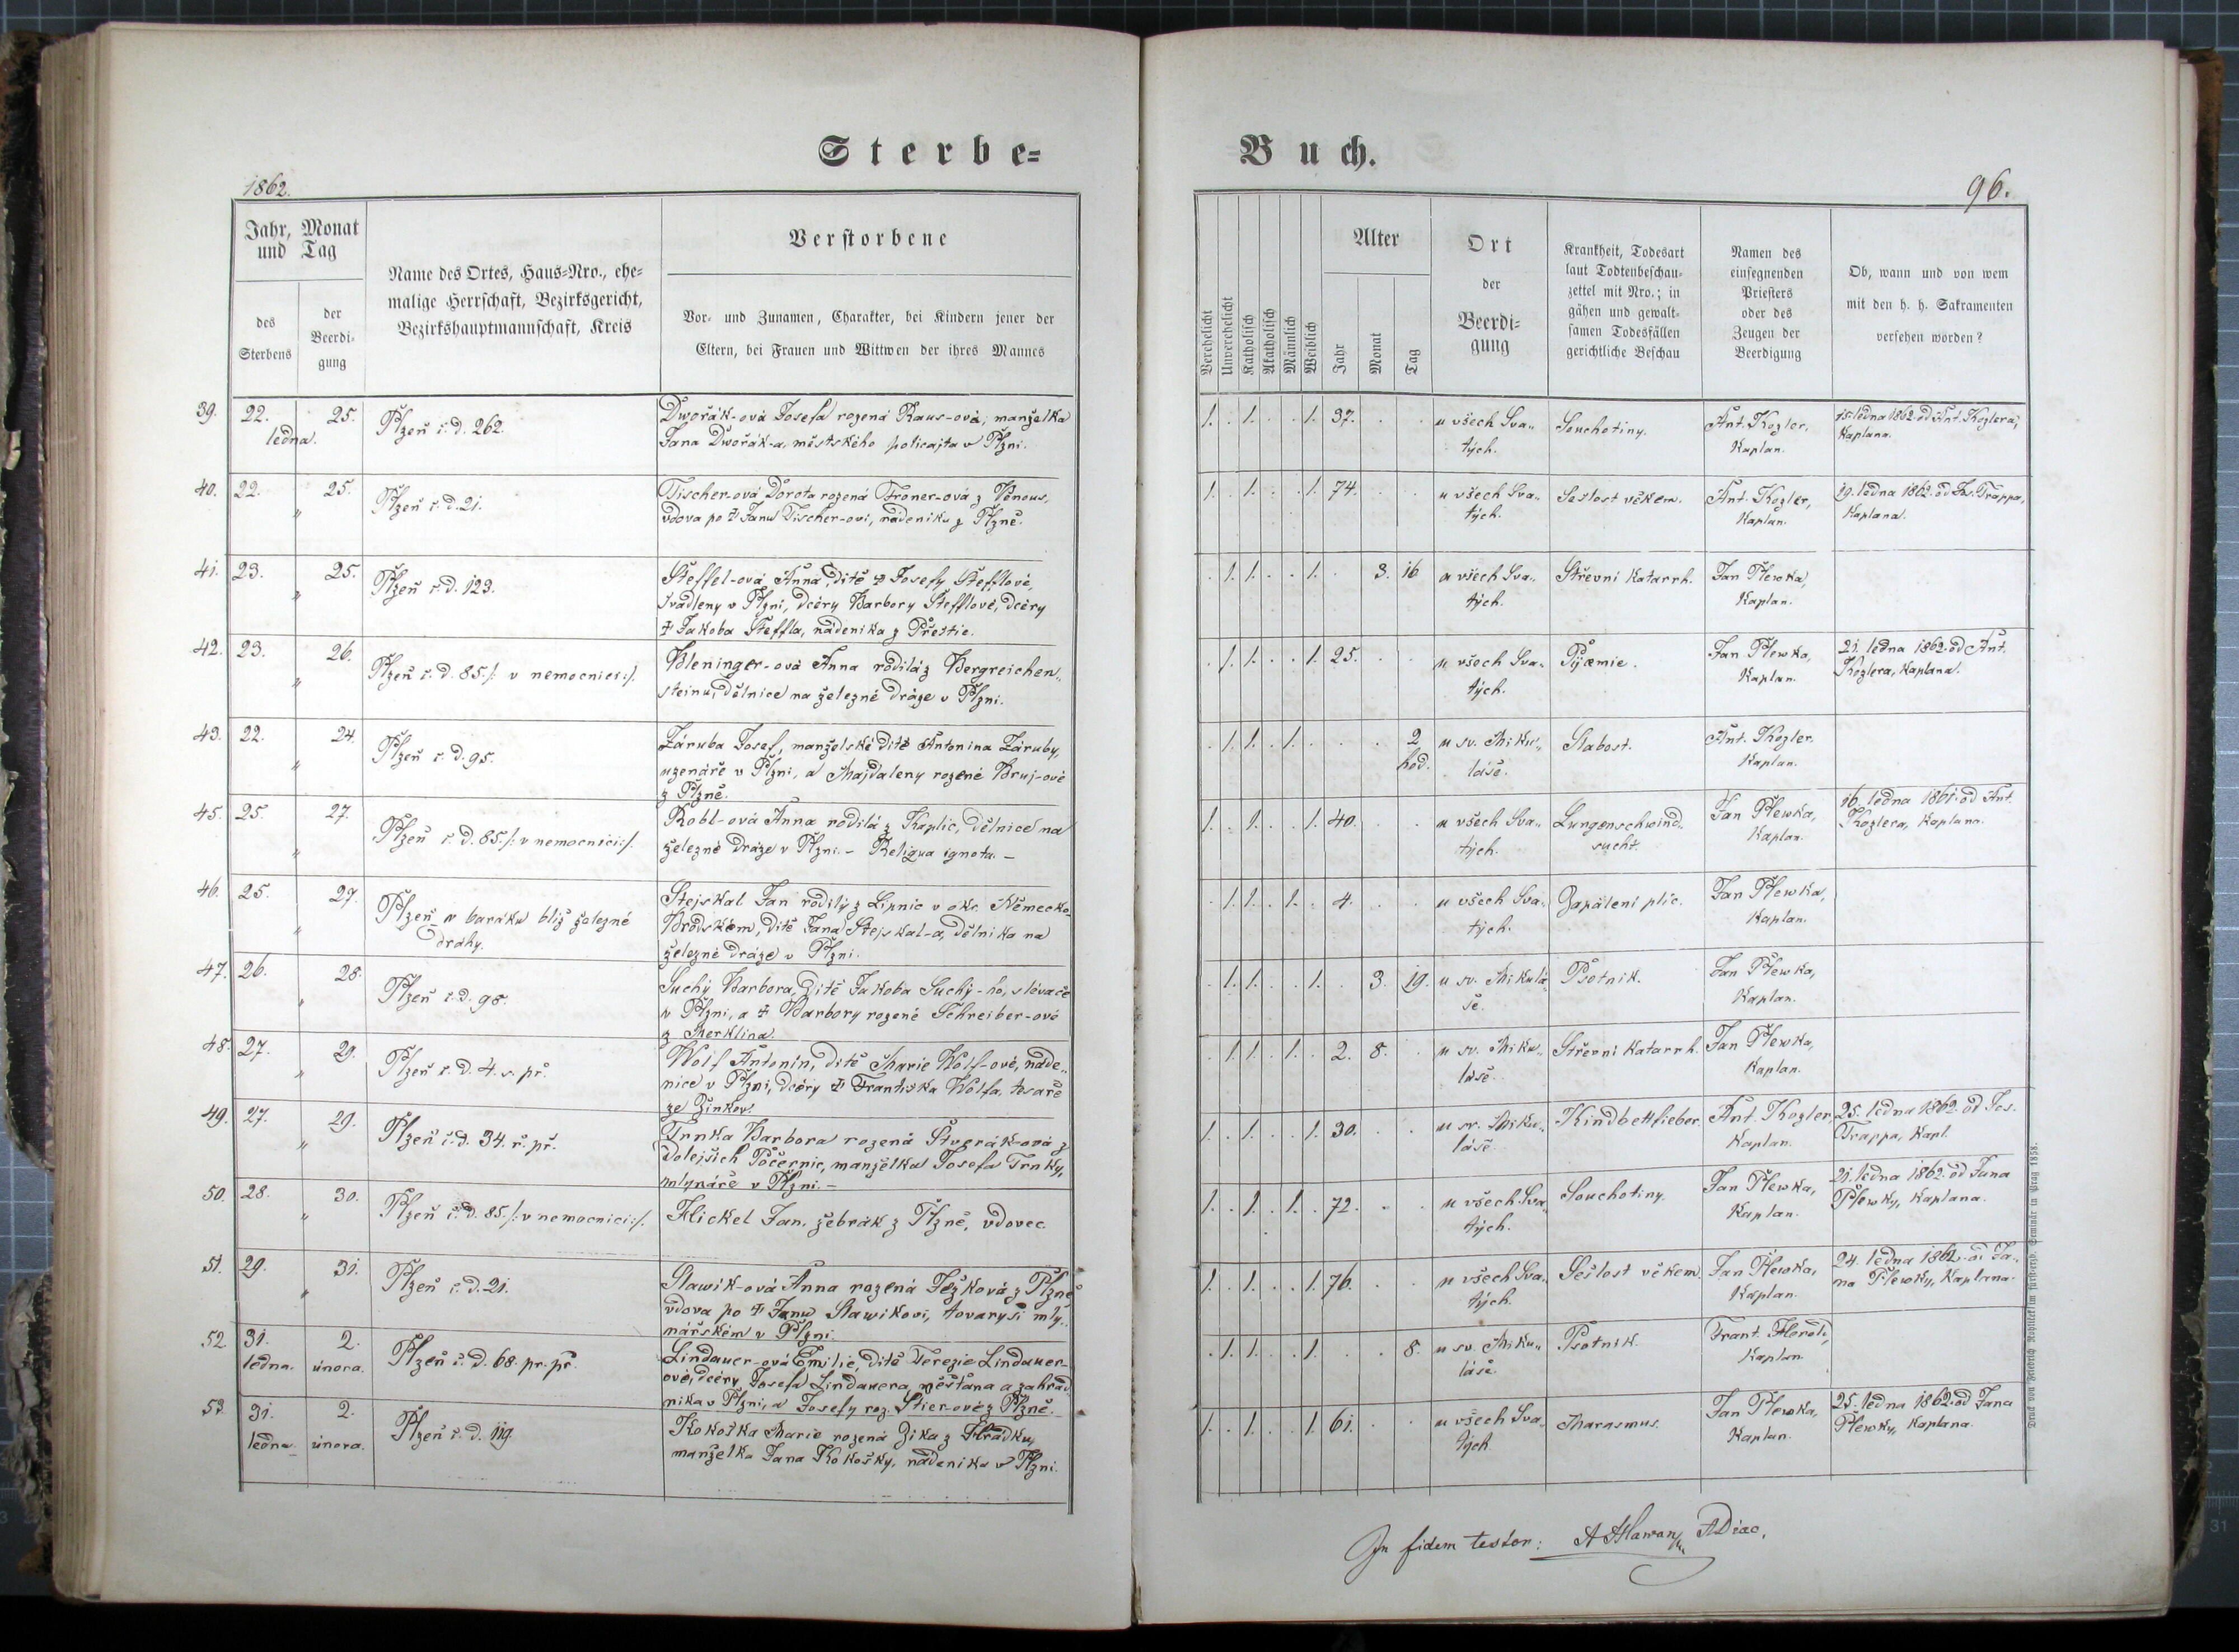 Sterbe-
Buch.
1862.
96.
Jahr, Monat
und Tag
des
Sterbens
der
Beerdi-
gung
Name des Ortes, Haus-Nro., ehe-
malige Herrschaft, Bezirksgericht,
Bezirkshauptmannschaft, Kreis
Verstorbene
Vor- und Zunamen, Charakter, bei Kindern jener der
Eltern, bei Frauen und Wittwen der ihres Mannes
Verehelicht
Unverehelicht
Katholisch
Akatholisch
Männlich
Weiblich
Alter
Jahr
Monat
Tag
Ort
der
Beerdi-
gung
Krankheit, Todesart
laut Todtenbeschau-
zettel mit Nro.; in
gähen und gewalt-
samen Todesfällen
gerichtliche Beschau
Namen des
einsegnenden
Priesters
oder des
Zeugen der
Beerdigung
Ob, wann und von wem
mit den h. h. Sakramenten
versehen worden?
39. 22. 25.
ledna.
Plzeň č. d. 262.
Dwořák-ová Josefa rozená Raus-ová, manželka
Jana Dwořák-a, městského policajta v Plzni.
1. . 1. . . 1. 37. . .
u všech Sva-
tých.
Souchotiny.
Ant. Kogler,
Kaplan.
15. ledna 1862. od Ant. Koglera,
Kaplana.
40. 22. 25.
"
Plzeň č. d. 21.
Tischer-ová Dorota rozená Froner-ová z Venous,
vdova po † Janu Tischer-ovi, nádeníku z Plzně.
1. . 1. . . 1. 74. . .
u všech Sva-
tých.
Sešlost věkem.
Ant. Kogler,
Kaplan.
19. ledna 1862. od Jos. Trappa,
Kaplana.
41. 23. 25.
"
Plzeň č. d. 123.
Steffel-ová Anna, dítě † Josefy Stefflové,
švadleny v Plzni, dcéry Barbory Stefflové, dcéry
† Jakoba Steffla, nádeníka z Přeštic.
. 1. 1. . . 1. . 3. 16
u všech Sva-
tých.
Střevní katarrh.
Jan Plewka,
Kaplan.
42. 23. 26.
"
Plzeň č. d. 85 /: v nemocnici :/.
Bleninger-ová Anna rodilá z Bergreichen-
steinu, dělnice na železné dráze v Plzni.
. 1. 1. . . 1. 25. . .
u všech Sva-
tých.
Pijæmie.
Jan Plewka,
Kaplan.
21. ledna 1862. od Ant.
Koglera, Kaplana.
43. 22. 24.
"
Plzeň č. d. 95.
Záruba Josef, manželské dítě Antonína Záruby,
uzenáře v Plzni, a Majdaleny rozené Bruj-ové
z Plzně.
. 1. 1. . 1. . . . 2
hod.
u sv. Miku-
láše.
Slabost.
Ant. Kogler.
Kaplan.
45. 25. 27.
"
Plzeň č. d. 85. /: v nemocnici :/.
Robl-ová Anna rodilá z Kaplic, dělnice na
železné dráze v Plzni. – Reliqua ignota. –
1. . 1. . . 1. 40. . .
u všech Sva-
tých.
Lungenschwind-
sucht.
Jan Plewka,
Kaplan.
16. ledna 1861. od Ant.
Koglera, Kaplana.
46. 25. 27.
"
Plzeň v baráku blíž železné
dráhy.
Stejskal Jan rodilý z Lipnic v okr. Německo-
Brodském, dítě Jana Stejskal-a, dělníka na
železné dráze v Plzni.
. 1. 1. . 1. . 4. . .
u všech Sva-
tých.
Zapálení plic.
Jan Plewka,
Kaplan.
47. 26. 28.
"
Plzeň č. d. 98.
Suchý Barbora, Dítě Jakoba Suchý-ho, slévače
v Plzni, a † Barbory rozené Schreiber-ové
z Merklína.
. 1. 1. . . 1. . 3. 19.
u sv. Mikulá-
še.
Psotník.
Jan Plewka,
Kaplan.
48. 27. 29.
"
Plzeň č. d. 4. s. př.
Wolf Antonín, dítě Marie Wolf-ové, náde-
nice v Plzni, dcéry † Františka Wolfa, tesaře
ze Žinkov.
. 1. 1. . 1. . 2. 8. .
u sv. Miku-
láše.
Střevní katarrh.
Jan Plewka,
Kaplan.
49. 27. 29.
"
Plzeň č. d. 34. ř. př.
Trnka Barbora rozená Štverák-ová z
Dolejších Počernic, manželka Josefa Trnky,
mlynáře v Plzni. –
1. . 1. . . 1. 30. . .
u sv. Miku-
láše.
Kindbettfieber.
Ant. Kogler,
Kaplan.
25. ledna 1862. od Jos.
Trappa, Kapl.
50. 28. 30.
"
Plzeň č. d. 85 /: v nemocnici :/.
Hickel Jan, žebrák z Plzně, vdovec.
1. . 1. . 1. . 72. . .
u všech Sva-
tých.
Souchotiny.
Jan Plewka,
Kaplan.
21. ledna 1862. od Jana
Plewky, Kaplana.
51. 29. 31.
"
Plzeň č. d. 21.
Slawík-ová Anna rozená Ježková z Plzně
vdova po † Janu Slawíkovi, tovaryši mly-
nářském v Plzni.
1. . 1. . . 1. 76. . .
u všech Sva-
tých.
Sešlost věkem.
Jan Plewka,
Kaplan.
24. ledna 1862. od Ja-
na Plewky, Kaplana.
52. 31. 2.
ledna. února.
Plzeň č. d. 68. pr. př.
Lindauer-ová Emilie, dítě Terezie Lindauer-
ové, dcéry Josefa Lindauera, měšťana a zahrad-
níka v Plzni, a Josefy roz. Stier-ové z Plzně.
. 1. 1. . . 1. . . 8.
u sv. Miku-
láše.
Psotník.
Frant. Herold,
Kaplan.
53. 31. 2.
ledna. února.
Plzeň č. d. 119.
Kokoška Marie rozená Zika z Hrádku,
manželka Jana Kokošky, nádeníka v Plzni.
1. . 1. . . 1. 61. . .
u všech Sva-
tých.
Marasmus.
Jan Plewka,
Kaplan.
25. ledna 1862. od Jana
Plewky, Kaplana.
In fidem testor:
Druck von Friedrich Rohlíček im fürsterzb. Seminär in Prag 1858.